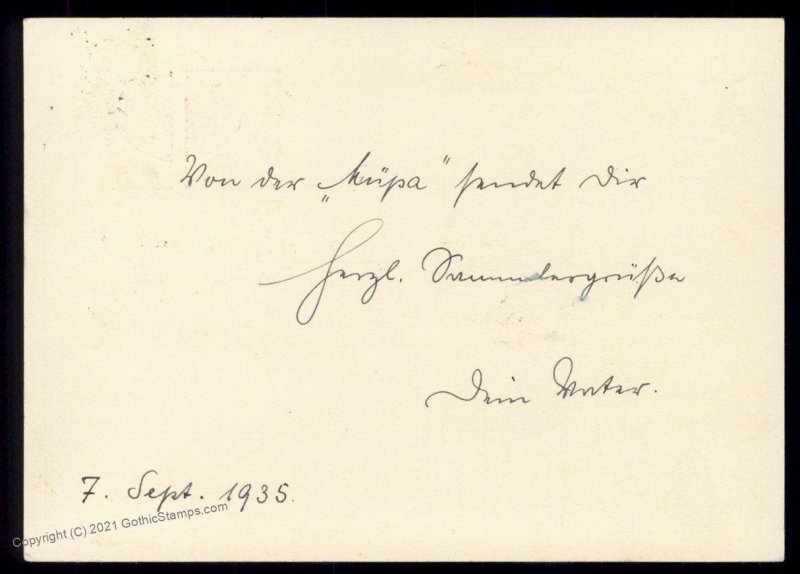 Von der „Müpa“ sendet Dir
herzl. Sammlergrüße
Dein Vater.
7. Sept. 1935.
Copyright (C) 2021 GothicStamps.com